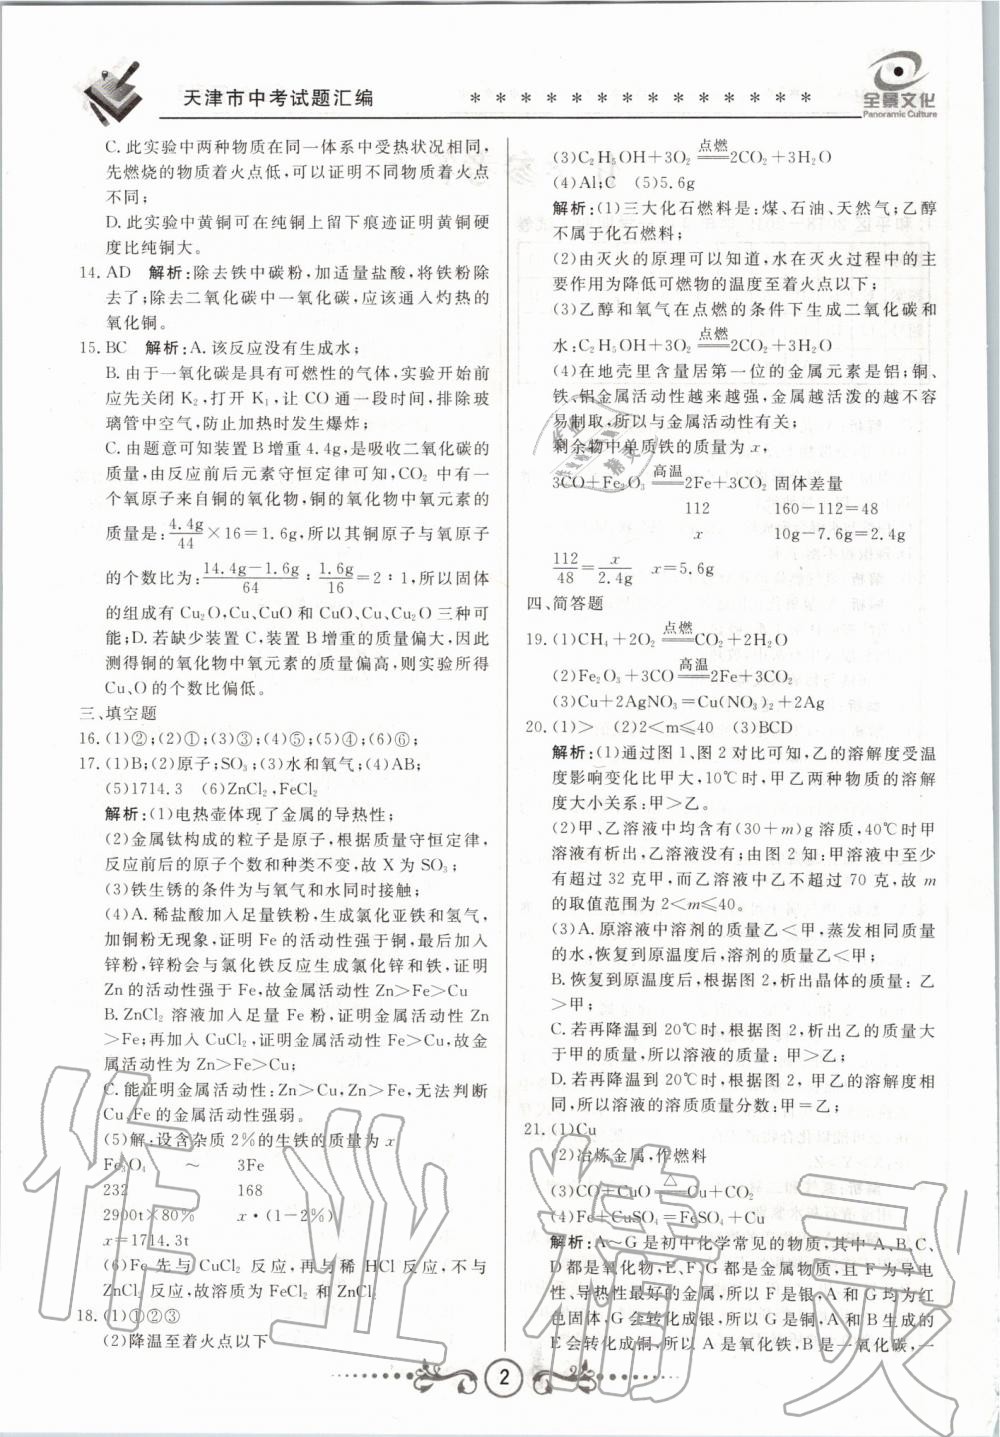 天津市中考试题汇编
* * * * * * * * * * * * * * * *
全景文化
Panoramic Culture
C.此实验中两种物质在同一体系中受热状况相同,
先燃烧的物质着火点低,可以证明不同物质着火点
不同;
D.此实验中黄铜可在纯铜上留下痕迹证明黄铜硬
度比纯铜大。
14.AD 解析:除去铁中碳粉,加适量盐酸,将铁粉除
去了;除去二氧化碳中一氧化碳,应该通入灼热的
氧化铜。
15.BC 解析:A.该反应没有生成水;
B.由于一氧化碳是具有可燃性的气体,实验开始前
应先关闭 K₂,打开 K₁,让 CO 通一段时间,排除玻
璃管中空气,防止加热时发生爆炸;
C.由题意可知装置 B 增重 4.4g,是吸收二氧化碳的
质量,由反应前后元素守恒定律可知,CO₂ 中有一
个氧原子来自铜的氧化物,铜的氧化物中氧元素的
质量是:4.4g/44×16=1.6g,所以其铜原子与氧原子
的个数比为:14.4g-1.6g/64:1.6g/16=2:1,所以固体
的组成有 Cu₂O,Cu、CuO 和 CuO、Cu、Cu₂O 三种可
能;D.若缺少装置 C,装置 B 增重的质量偏大,因此
测得铜的氧化物中氧元素的质量偏高,则实验所得
Cu、O 的个数比偏低。
三、填空题
16.(1)②;(2)①;(3)③;(4)⑤;(5)④;(6)⑥;
17.(1)B;(2)原子;SO₃;(3)水和氧气;(4)AB;
(5)1714.3 (6)ZnCl₂,FeCl₂
解析:(1)电热壶体现了金属的导热性;
(2)金属钛构成的粒子是原子,根据质量守恒定律,
反应前后的原子个数和种类不变,故 X 为 SO₃;
(3)铁生锈的条件为与氧气和水同时接触;
(4)A.稀盐酸加入足量铁粉,生成氯化亚铁和氢气,
加铜粉无现象,证明 Fe 的活动性强于铜,最后加入
锌粉,锌粉会与氯化铁反应生成氯化锌和铁,证明
Zn 的活动性强于 Fe,故金属活动性 Zn>Fe>Cu
B.ZnCl₂ 溶液加入足量 Fe 粉,无现象,说明 Zn
>Fe;再加入 CuCl₂,证明金属活动性 Fe>Cu,故金
属活动性为 Zn>Fe>Cu;
C.能证明金属活动性:Zn>Cu,Zn>Fe,无法判断
Cu、Fe 的金属活动性强弱。
(5)解:设含杂质 2%的生铁的质量为 x
Fe₃O₄ ~ 3Fe
232 168
2900t×80% x·(1-2%)
x=1714.3t
(6)Fe 先与 CuCl₂ 反应,再与稀 HCl 反应,不与
ZnCl₂ 反应,故溶质为 FeCl₂ 和 ZnCl₂
18.(1)①②③
(2)降温至着火点以下
(3)C₂H₅OH+3O₂ 点燃═2CO₂+3H₂O
(4)Al;C (5)5.6g
解析:(1)三大化石燃料是:煤、石油、天然气;乙醇
不属于化石燃料;
(2)由灭火的原理可以知道,水在灭火过程中的主
要作用为降低可燃物的温度至着火点以下;
(3)乙醇和氧气在点燃的条件下生成二氧化碳和
水:C₂H₅OH+3O₂ 点燃═2CO₂+3H₂O
(4)在地壳里含量居第一位的金属元素是铝;铜、
铁、铝金属活动性越来越强,金属越活泼的越不容
易制取,所以与金属活动性有关;
剩余物中单质铁的质量为 x,
3CO+Fe₂O₃ 高温═2Fe+3CO₂ 固体差量
112 160-112=48
x 10g-7.6g=2.4g
112/48=x/2.4g x=5.6g
四、简答题
19.(1)CH₄+2O₂ 点燃═CO₂+2H₂O
(2)Fe₂O₃+3CO 高温═2Fe+3CO₂
(3)Cu+2AgNO₃═Cu(NO₃)₂+2Ag
20.(1)> (2)2<m≤40 (3)BCD
解析:(1)通过图 1、图 2 对比可知,乙的溶解度受温
度影响变化比甲大,10℃时,甲乙两种物质的溶解
度大小关系:甲>乙。
(2)甲、乙溶液中均含有(30+m)g 溶质,40℃时甲
溶液有析出,乙溶液没有;由图 2 知:甲溶液中至少
有超过 32 克甲,而乙溶液中乙不超过 70 克,故 m
的取值范围为 2<m≤40。
(3)A.原溶液中溶剂的质量乙<甲,蒸发相同质量
的水,恢复到原温度后,剩余溶剂的质量乙<甲;
B.恢复到原温度后,根据图 2,析出晶体的质量:乙
>甲;
C.若再降温到 20℃时,根据图 2,析出乙的质量大
于甲的质量,所以溶液的质量:甲>乙;
D.若再降温到 20℃时,根据图 2,甲乙的溶解度相
同,所以溶液的溶质质量分数:甲=乙;
21.(1)Cu
(2)冶炼金属,作燃料
(3)CO+CuO △═Cu+CO₂
(4)Fe+CuSO₄═FeSO₄+Cu
解析:A~G 是初中化学常见的物质,其中 A、B、C、
D 都是氧化物,E、F、G 都是金属单质,且 F 为导电
性、导热性最好的金属,所以 F 是银,A 和 G 均为红
色固体,G 会转化成银,所以 G 是铜,B 生成的
E 会转化成铜,所以 A 是氧化铁,B 是一氧化碳,一
2
作业精灵